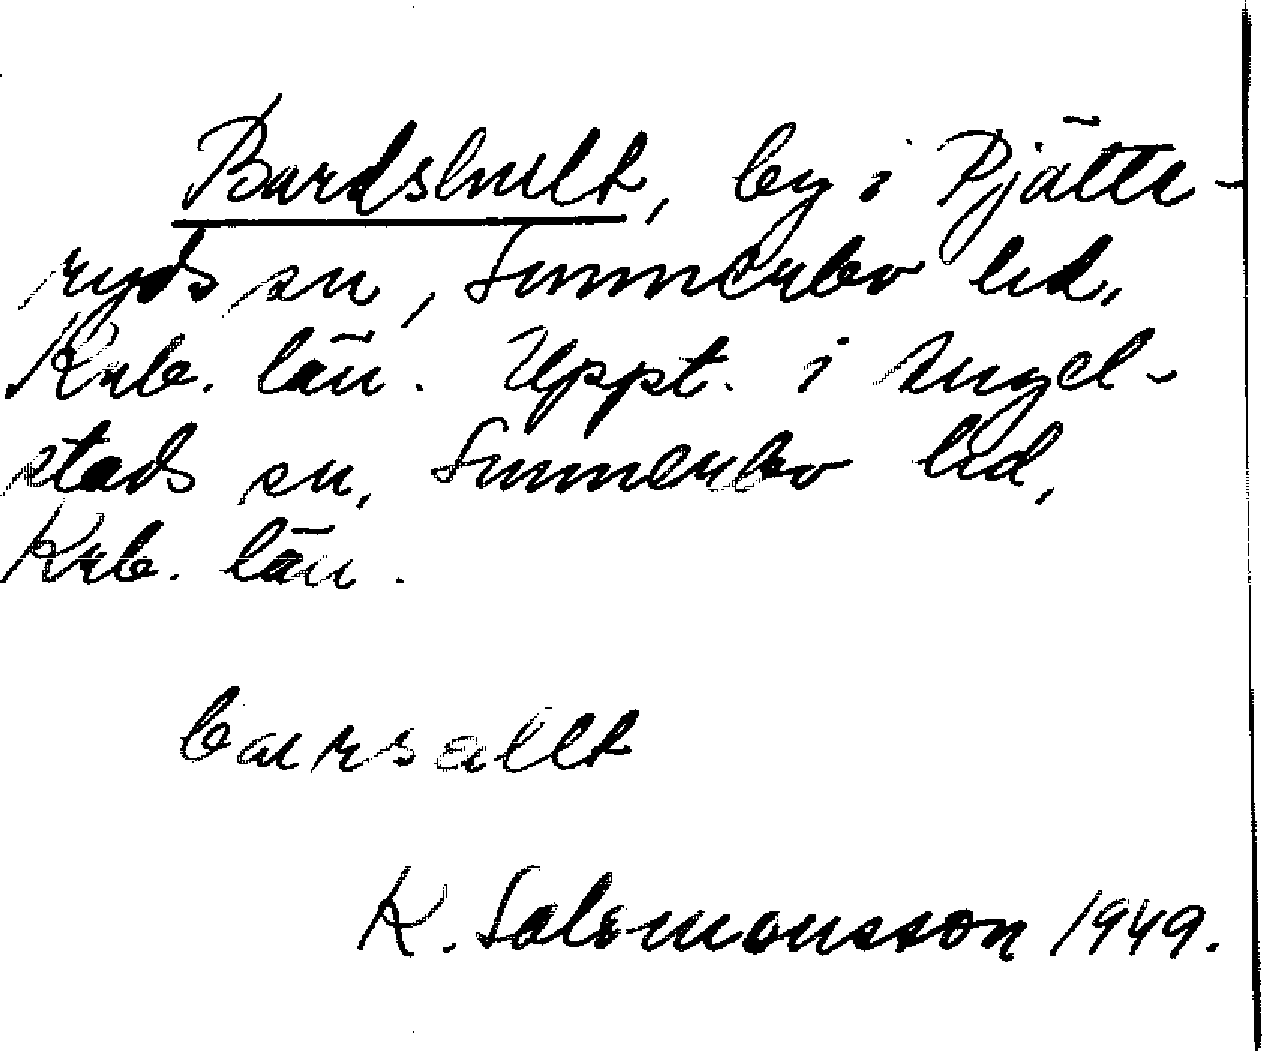 Bardshult, by i Pjätte-
ryds sn, Sunnerbo hd,
Krb. län. Uppt. i Angel-
stads sn, Sunnerbo hd,
Krb. län.
barsallt
K. Salomonsson 1949.